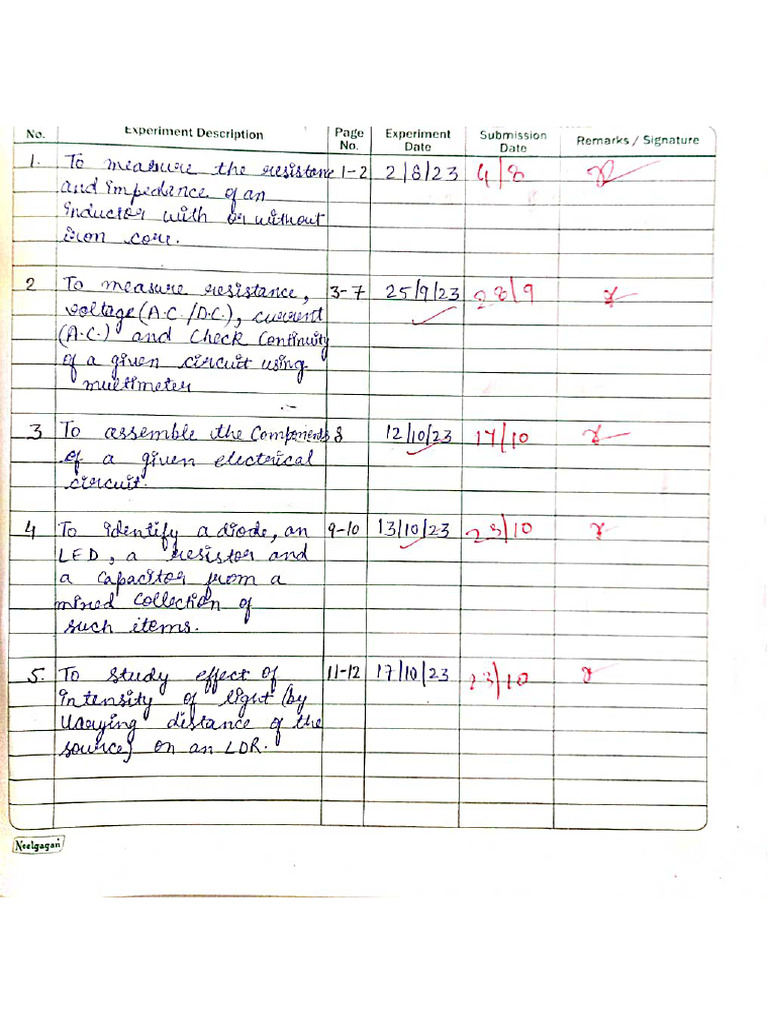 No. Experiment Description Page No. Experiment Date Submission Date Remarks / Signature
1. To measure the resistance 1-2 2/8/23 4/8
and impedance of an
inductor with or without
iron core.
2 To measure resistance, 3-7 25/9/23 28/9
voltage (A.C./D.C.), current
(A.C.) and check continuity
of a given circuit using
multimeter
3 To assemble the components 8 12/10/23 17/10
of a given electrical
circuit.
4 To identify a diode, an 9-10 13/10/23 23/10
LED, a resistor and
a capacitor from a
mixed collection of
such items.
5. To study effect of 11-12 17/10/23 23/10
intensity of light (by
varying distance of the
source) on an LDR.
Neelgagan